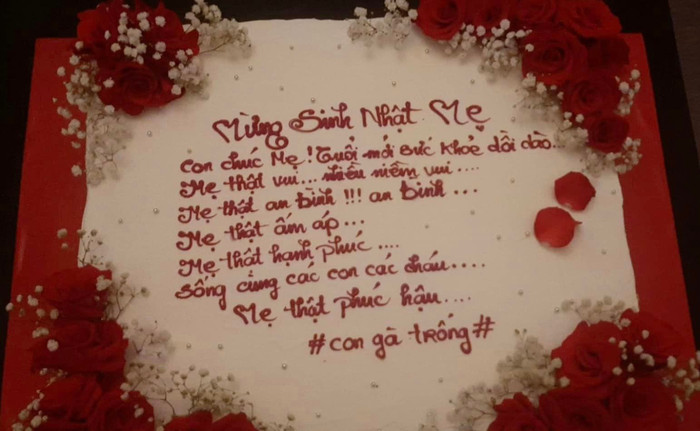 Mừng Sinh Nhật Mẹ
Con chúc Mẹ! Tuổi mới sức khỏe dồi dào..
Mẹ thật vui... nhiều niềm vui....
Mẹ thật an bình!!! an bình...
Mẹ thật ấm áp...
Mẹ thật hạnh phúc....
Sống cùng các con các cháu....
Mẹ thật phúc hậu....
#con gà trống#